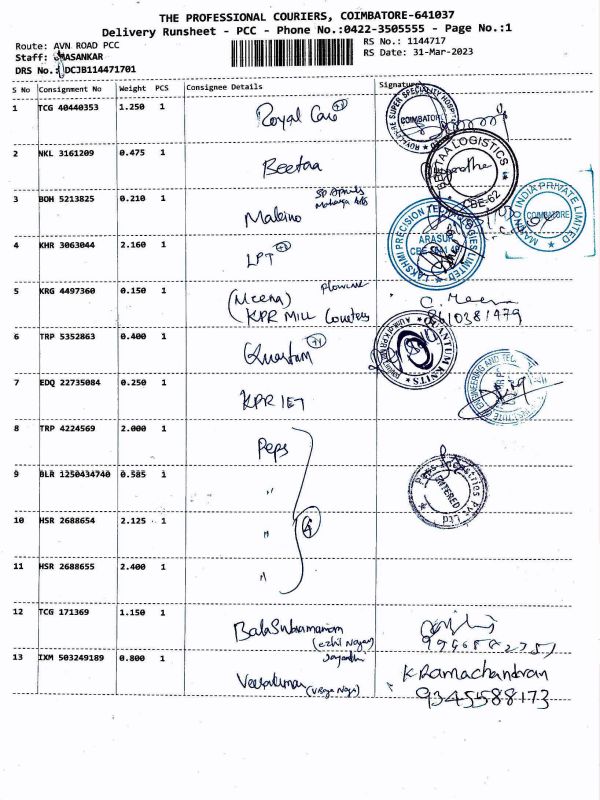 THE PROFESSIONAL COURIERS, COIMBATORE-641037
Delivery Runsheet - PCC - Phone No.:0422-3505555 - Page No.:1
Route: AVN ROAD PCC
RS No.: 1144717
Staff: MASANKAR
RS Date: 31-Mar-2023
DRS No.: DCJB114471701
S No Consignment No Weight PCS Consignee Details Signature
1 TCG 40440353 1.250 1 Royal Care
COIMBATORE
2 NKL 3161209 0.475 1 Beetaa
BEETAA LOGISTICS
CBE-62
3 BOH 5213825 0.210 1
INDIA PRIVATE LIMITED
COIMBATORE
4 KHR 3063044 2.160 1 LPT
LAKSHMI PRECISION TECHNOLOGIES LIMITED
ARASUR
5 KRG 4497360 0.150 1 (Meena)
KPR MILL
C. Meena
8610381479
6 TRP 5352863 0.400 1 Quantum
QUANTUM KNITS
7 EDQ 22735084 0.250 1 KPR IET
ENGINEERING AND
8 TRP 4224569 2.000 1 Peps
9 BLR 1250434740 0.585 1 "
Peps Industries Pvt Ltd
ENTERED
10 HSR 2688654 2.125 1 "
4
11 HSR 2688655 2.400 1 "
12 TCG 171369 1.150 1 BalaSubramaniam
(Ezhil Nagar)
13 IXM 503249189 0.800 1
K Ramachandran
9345588173